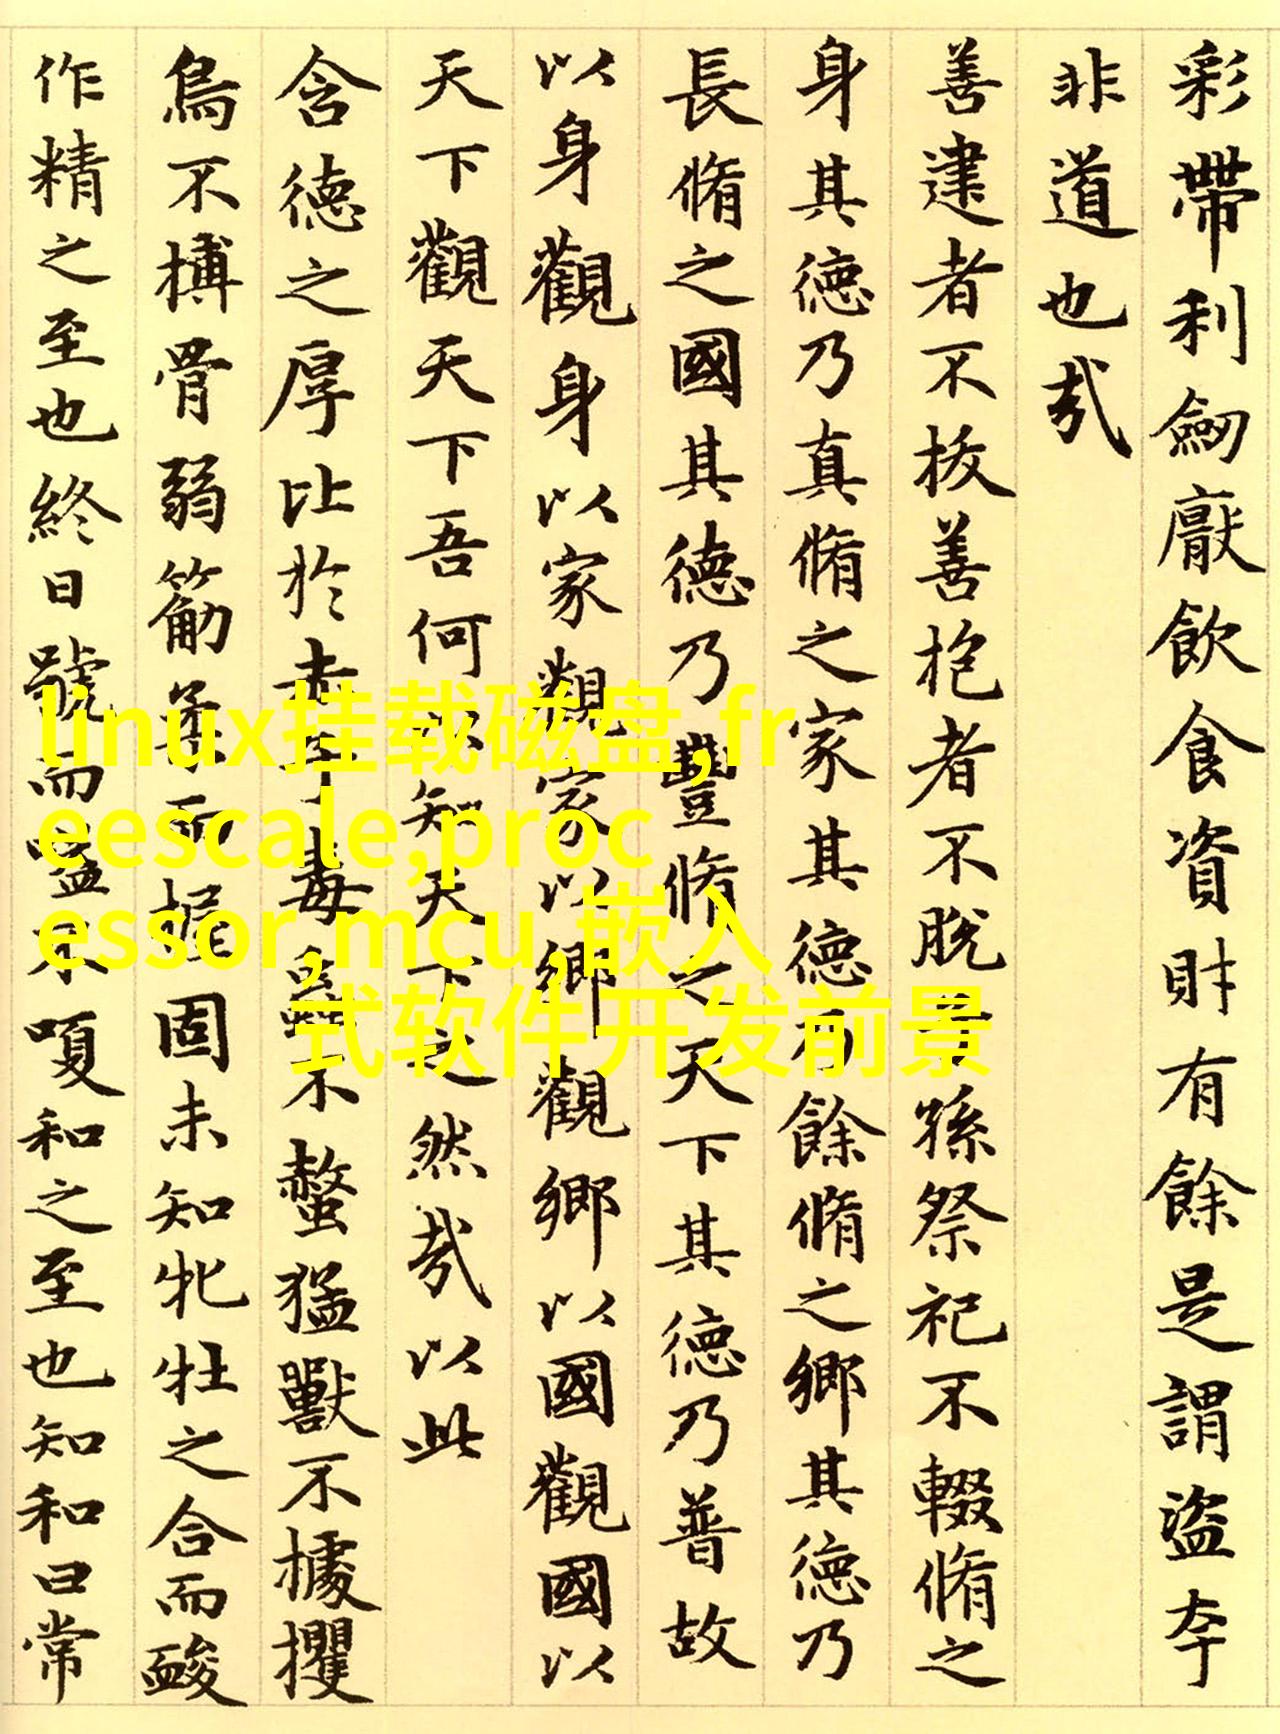 彩帶利劒厭飲食資財有餘是謂盜夸
非道也哉
善建者不拔善抱者不脫子孫祭祀不輟脩之
身其德乃真脩之家其德乃餘脩之鄉其德乃
長脩之國其德乃豐脩之天下其德乃普故
以身觀身以家觀家以鄉觀鄉以國觀國以
天下觀天下吾何以知天下之然哉以此
含德之厚比於赤子毒蟲不螫猛獸不據攫
鳥不搏骨弱筋柔而握固未知牝牡之合而酸
作精之至也終日號而嗌不嗄和之至也知和曰常
linux挂载磁盘,fr
eescale,proc
essor,mcu,嵌入
式软件开发前景